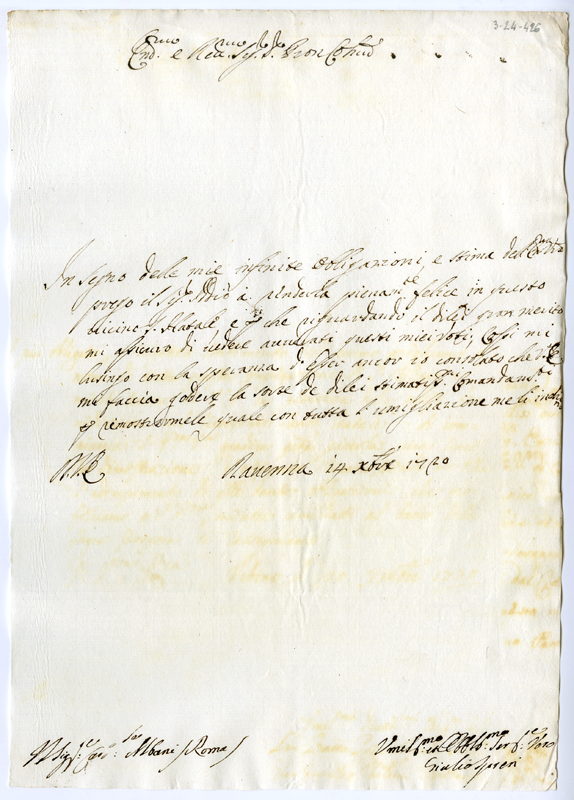 3-24-426
Em.mo e Rev.mo Sig.r Pron Col.mo
In segno delle mie infinite obligazioni, e stima dell'Em.za V.ra
prego il Sig.r Iddio à renderla pienam.te felice in questo
vicino S. Natale, e p che risguardando il di lei gran merito
mi assicuro di vedere avverati questi miei voti, Così mi
lusingo con la speranza d'esser ancor io consolato che V. E.
mi faccia godere la sorte de di lei stimatis.mi Comandam.ti
p rimostrarmele quale con tutta l'umigliazione me le inchino
Ravenna 14 Xbre 1720
Albani / Roma /
Umil.mo et Obbl.mo Ser.re
Giulio